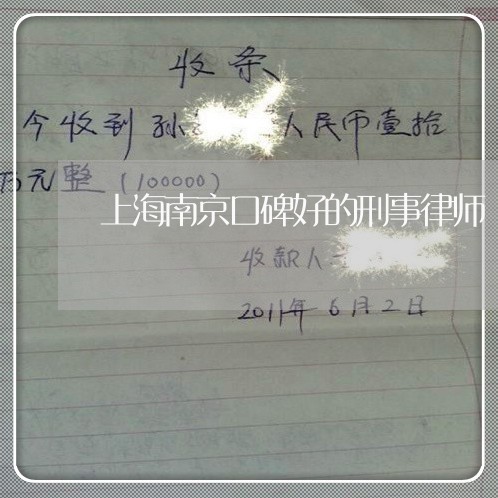 收条
今收到孙 人民币壹拾
万元整(100000)
上海南京口碑好的刑事律师
收款人
2011年6月2日